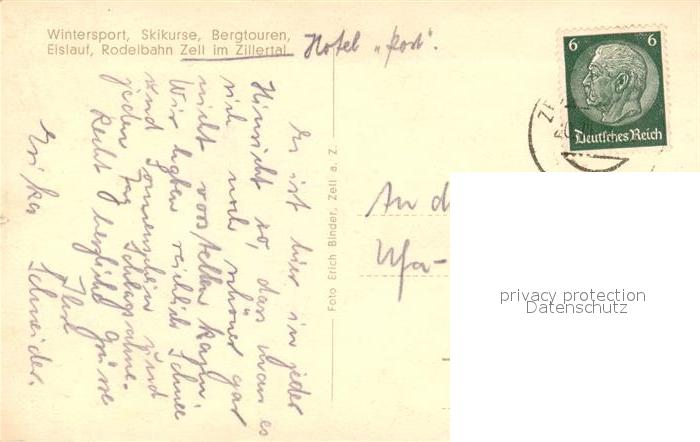 Wintersport, Skikurse, Bergtouren,
Eislauf, Rodelbahn Zell im Zillertal
Hotel „Post".
6 6
Deutsches Reich
Es ist hier in jeder
Hinsicht so, dass man es
sich noch schöner gar
nicht vorstellen kann.
Wir haben reichlich Schnee
und Sonnenschein und
jeden Tag Schlagsahne.
Recht herzliche Grüsse
Ihre
Erika Schneider.
Foto Erich Binder, Zell a. Z.
An d
Ufa-
privacy protection
Datenschutz